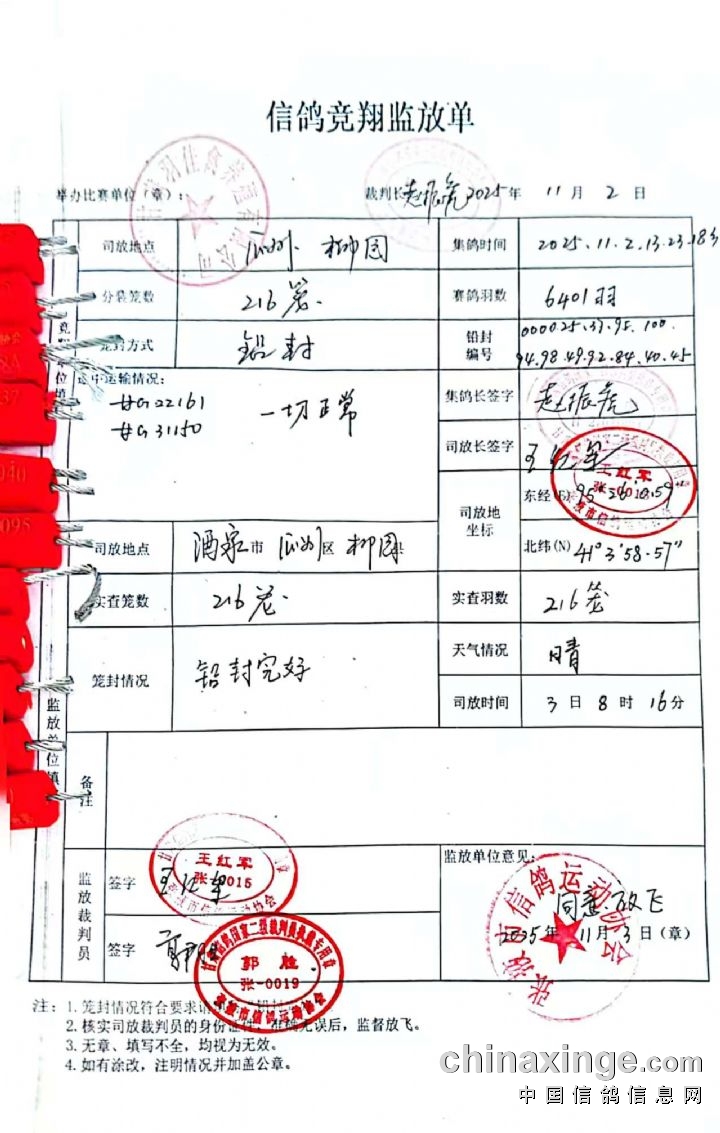 信鸽竞翔监放单
举办比赛单位(章): 裁判长 赵振虎 2025年 11月 2日
司放地点 瓜州 柳园 集鸽时间 2025.11.2.13.23
分装笼数 216笼 赛鸽羽数 6401羽
笼封方式 铅封 铅封编号 0000.25.37.95.100.
94.98.49.92.84.40.45
途中运输情况:
甘G22161
甘G31150
一切正常
集鸽长签字 赵振虎
司放长签字 王红军
王红军
司放地坐标 东经(E)
北纬(N) 41°3′58.57″
司放地点 酒泉市 瓜州区 柳园
实查笼数 216笼 实查羽数 216笼
笼封情况 铅封完好 天气情况 晴
司放时间 3日8时16分
备注
监放裁判员
签字 王红军
王红军
张-0015
签字
郭胜
张-0019
监放单位意见:
同意放飞
2025年11月3日(章)
张掖市信鸽运动协会
注: 1.笼封情况符合要求
2.核实司放裁判员的身份证件,准确无误后,监督放飞。
3.无章、填写不全,均视为无效。
4.如有涂改,注明情况并加盖公章。
chinaxinge.com
中国信鸽信息网